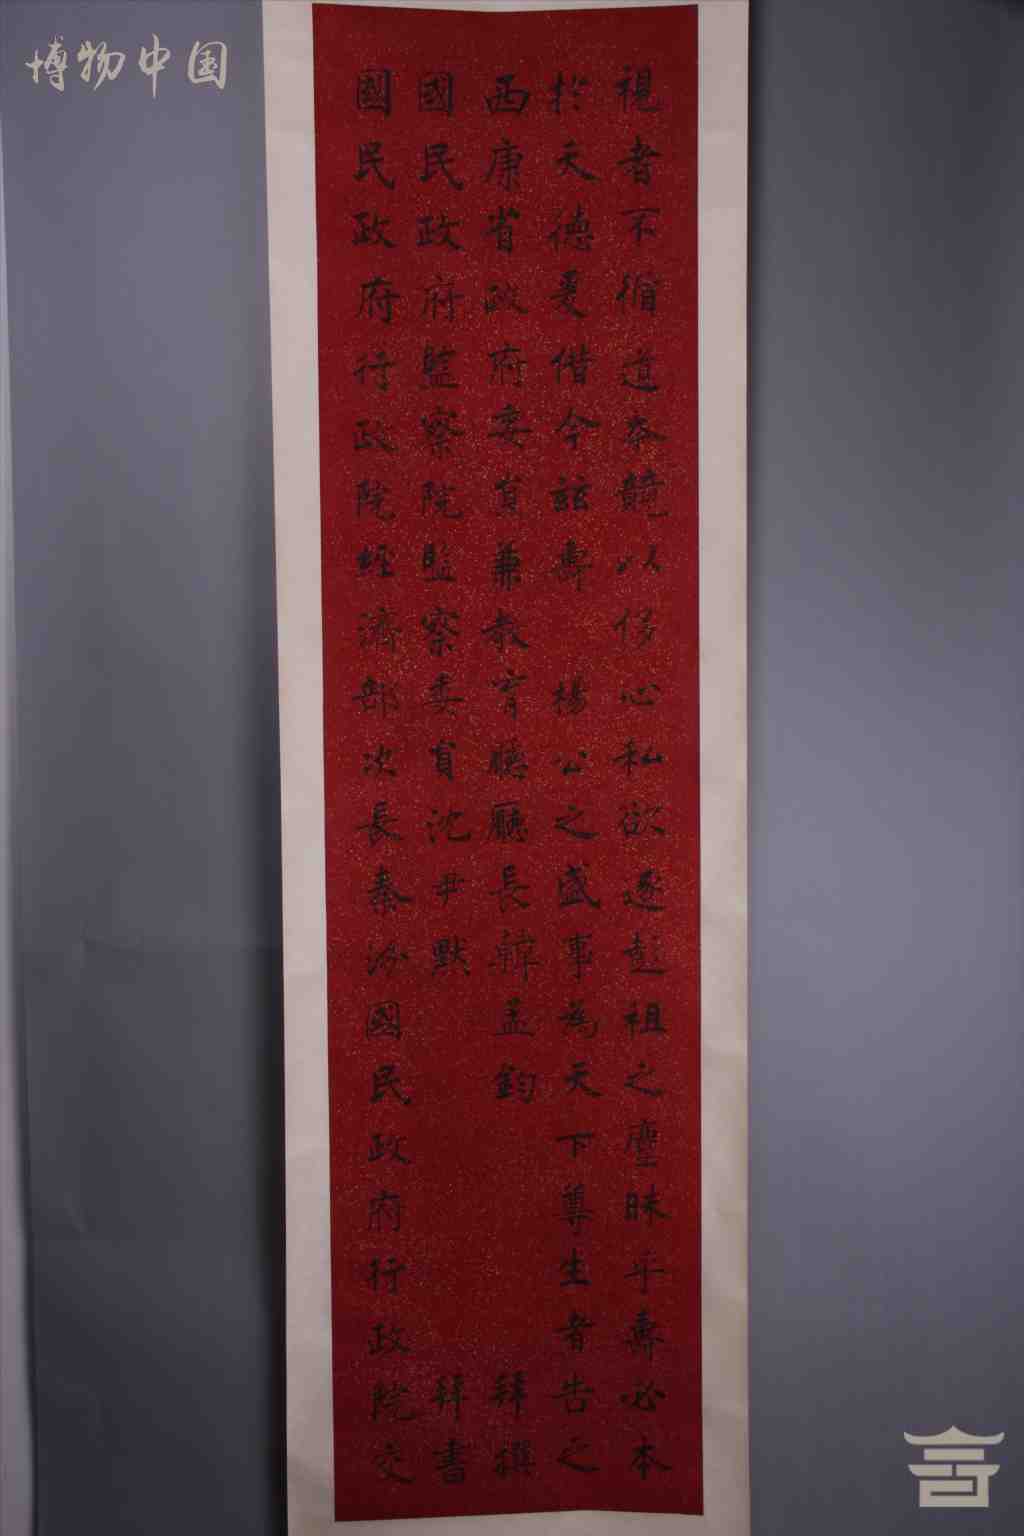 博物中国
視者不循道奔競以侈心私欲逐彭祖之塵昧乎壽必本
於天德憂偕今兹壽 楊公之盛事為天下尊生者告之
西康省政府委員兼教育廳廳長韓孟鈞 拜撰
國民政府監察院監察委員沈尹默 拜書
國民政府行政院經濟部次長秦汾國民政府行政院交